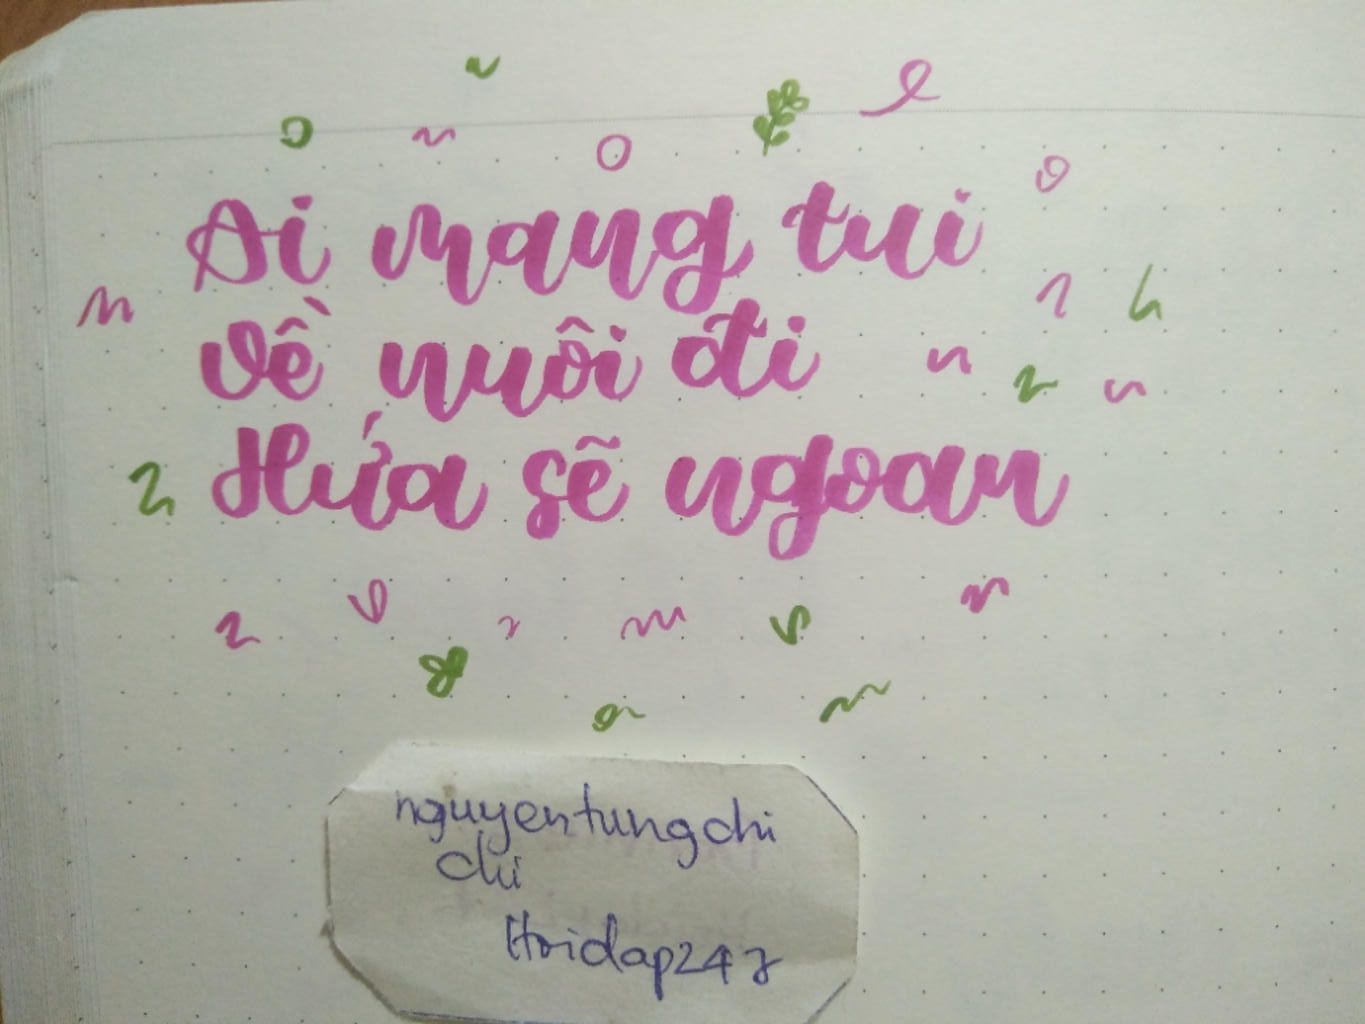 Ai mang tui
về nuôi đi
Hứa sẽ ngoan
nguyentungchi
chi
Hoidap247